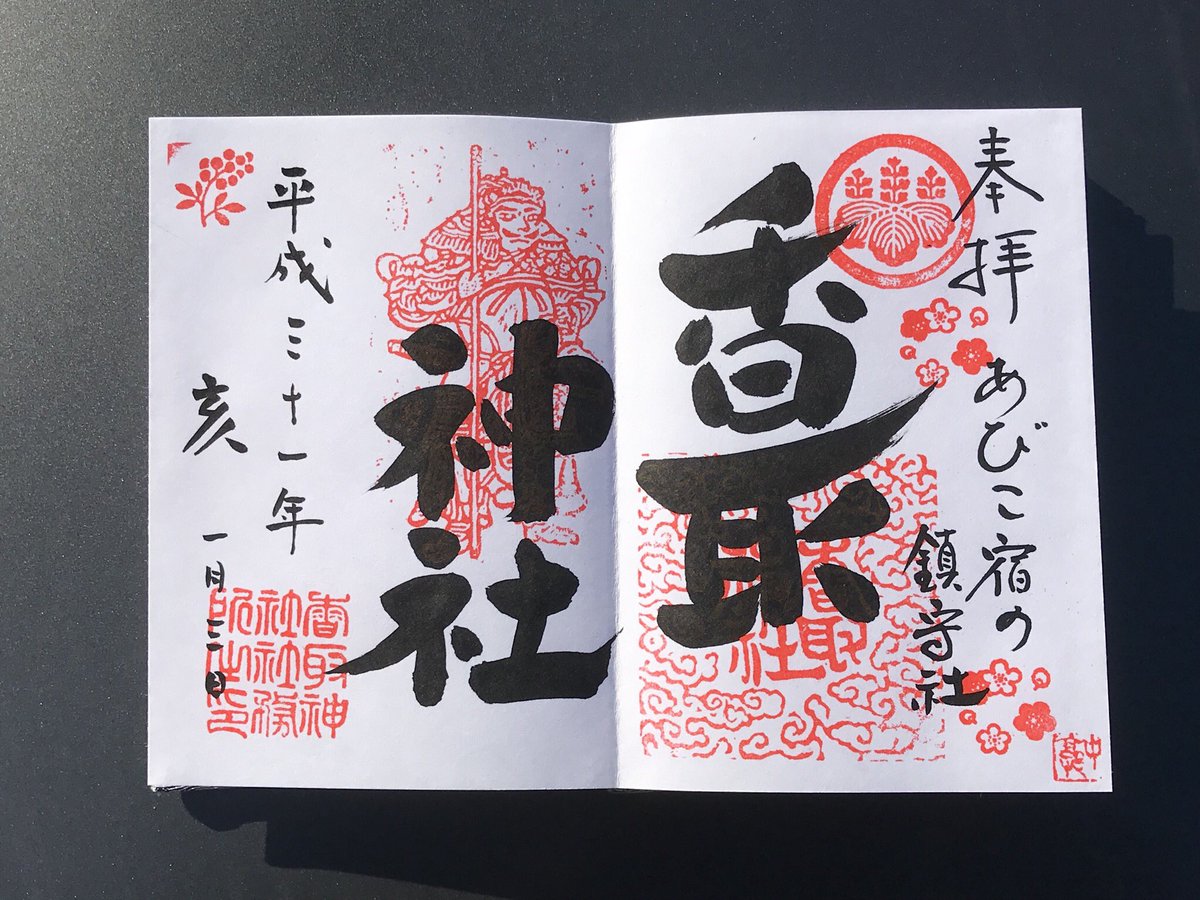 奉拝 あびこ宿の
鎮守社
香取
神社
平成三十一年
亥
一月三日
香取神
社社務
所之印